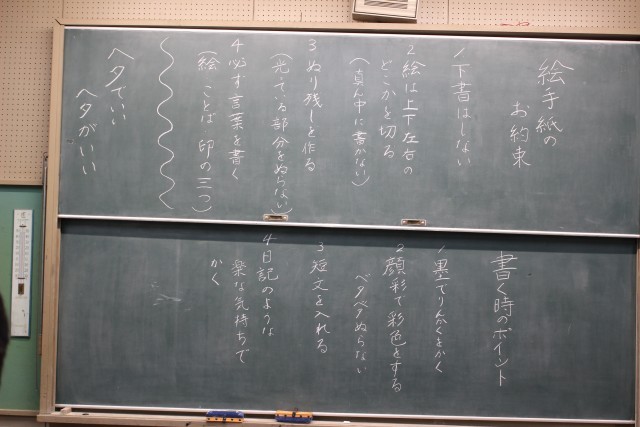 絵手紙の
お約束
1 下書はしない
2 絵は上下左右の
どこかを切る
(真ん中に書かない)
3 ぬり残しを作る
(光っている部分をぬらない)
4 必ず言葉を書く
(絵 ことば 印の三つ)
ヘタでいい
ヘタがいい
書く時のポイント
1 墨でりんかくをかく
2 顔彩で彩色をする
ベタベタぬらない
3 短文を入れる
4 日記のような
楽な気持ちで
かく